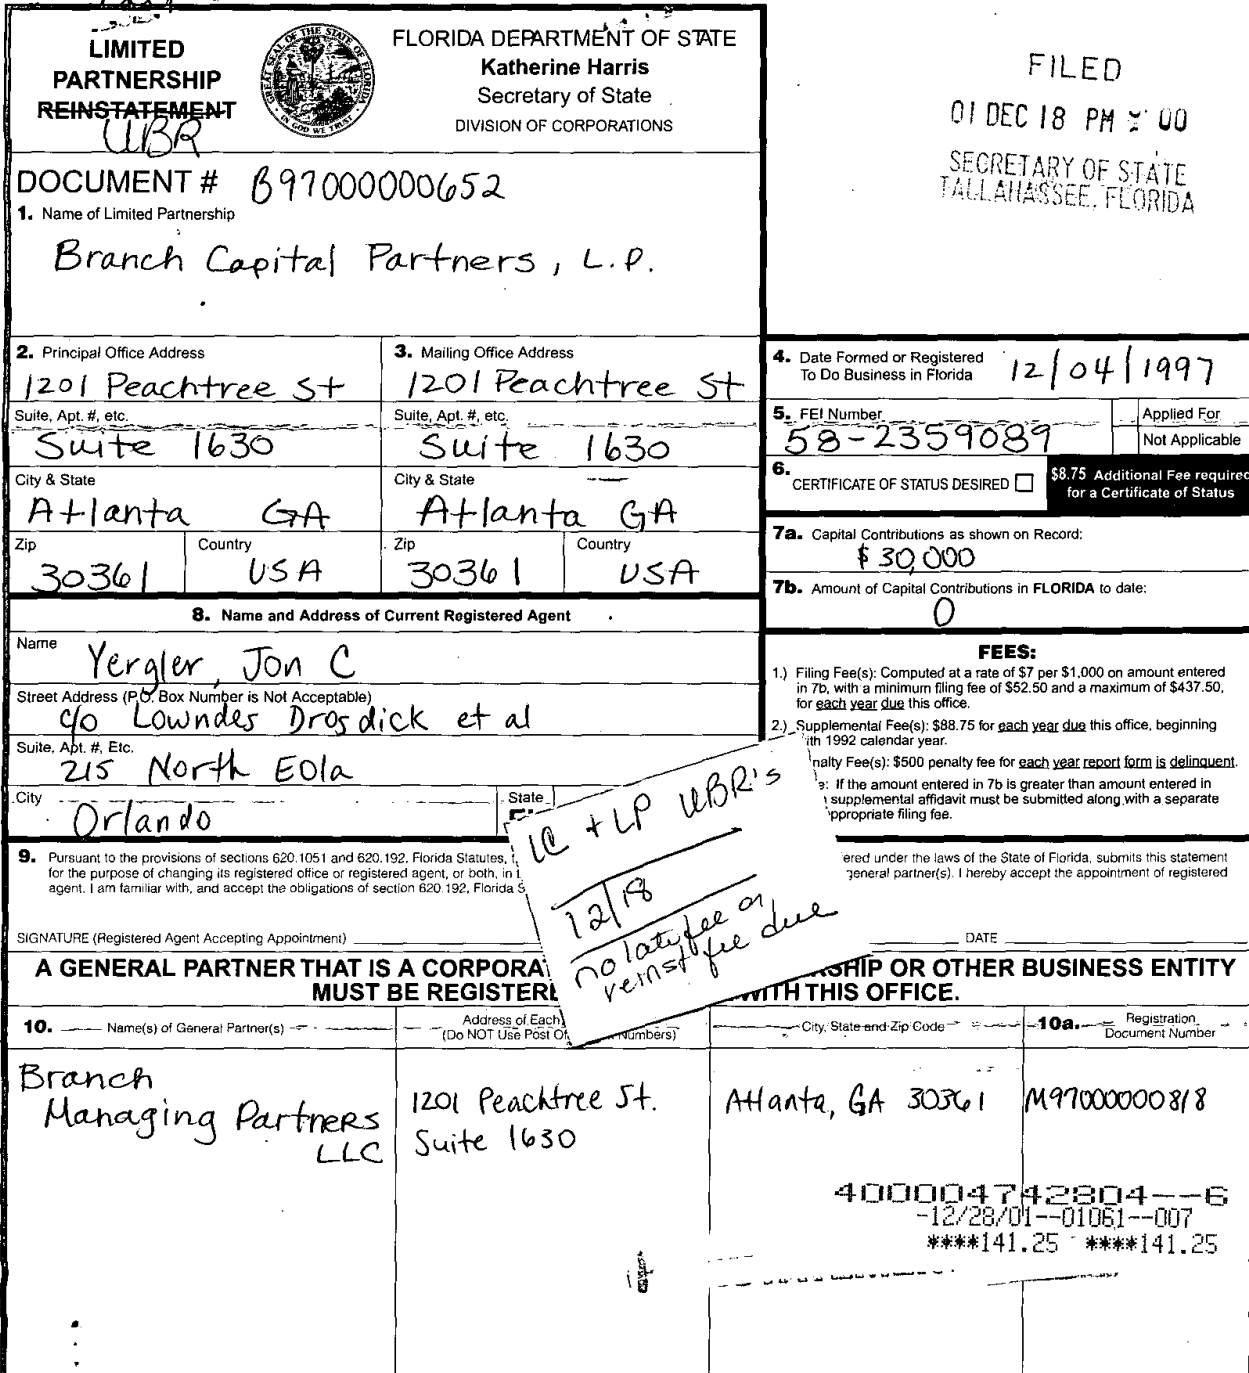 LIMITED
PARTNERSHIP
REINSTATEMENT
UBR
FLORIDA DEPARTMENT OF STATE
Katherine Harris
Secretary of State
DIVISION OF CORPORATIONS
GREAT SEAL OF THE STATE OF FLORIDA
IN GOD WE TRUST
FILED
01 DEC 18 PM 00
SECRETARY OF STATE
TALLAHASSEE, FLORIDA
DOCUMENT # B97000000652
1. Name of Limited Partnership
Branch Capital Partners, L.P.
2. Principal Office Address
1201 Peachtree St
Suite, Apt. #, etc.
Suite 1630
City & State
Atlanta GA
Zip Country
30361 USA
3. Mailing Office Address
1201 Peachtree St
Suite, Apt. #, etc.
Suite 1630
City & State
Atlanta GA
Zip Country
30361 USA
4. Date Formed or Registered
To Do Business in Florida 12/04/1997
5. FEI Number
58-2359089
Applied For
Not Applicable
6. CERTIFICATE OF STATUS DESIRED
$8.75 Additional Fee required
for a Certificate of Status
7a. Capital Contributions as shown on Record:
$ 30,000
7b. Amount of Capital Contributions in FLORIDA to date:
0
8. Name and Address of Current Registered Agent
Name
Yergler, Jon C
Street Address (P.O. Box Number is Not Acceptable)
c/o Lowndes Drosdick et al
Suite, Apt. #, Etc.
215 North Eola
City
Orlando
State
FEES:
1.) Filing Fee(s): Computed at a rate of $7 per $1,000 on amount entered
in 7b, with a minimum filing fee of $52.50 and a maximum of $437.50,
for each year due this office.
2.) Supplemental Fee(s): $88.75 for each year due this office, beginning
ith 1992 calendar year.
nalty Fee(s): $500 penalty fee for each year report form is delinquent.
e: If the amount entered in 7b is greater than amount entered in
supplemental affidavit must be submitted along with a separate
ppropriate filing fee.
LC + LP UBR's
12/18
no late fee or
reinst fee due
9. Pursuant to the provisions of sections 620.1051 and 620.192, Florida Statutes, t ered under the laws of the State of Florida, submits this statement
for the purpose of changing its registered office or registered agent, or both, in t general partner(s). I hereby accept the appointment of registered
agent. I am familiar with, and accept the obligations of section 620.192, Florida S
SIGNATURE (Registered Agent Accepting Appointment) DATE
A GENERAL PARTNER THAT IS A CORPORAT RSHIP OR OTHER BUSINESS ENTITY
MUST BE REGISTERE WITH THIS OFFICE.
10. Name(s) of General Partner(s)
Address of Each
(Do NOT Use Post Of Numbers)
City, State and Zip Code
10a. Registration
Document Number
Branch
Managing Partners
LLC
1201 Peachtree St.
Suite 1630
Atlanta, GA 30361
M97000000818
400004742804--6
-12/28/01--01061--007
****141.25 ****141.25